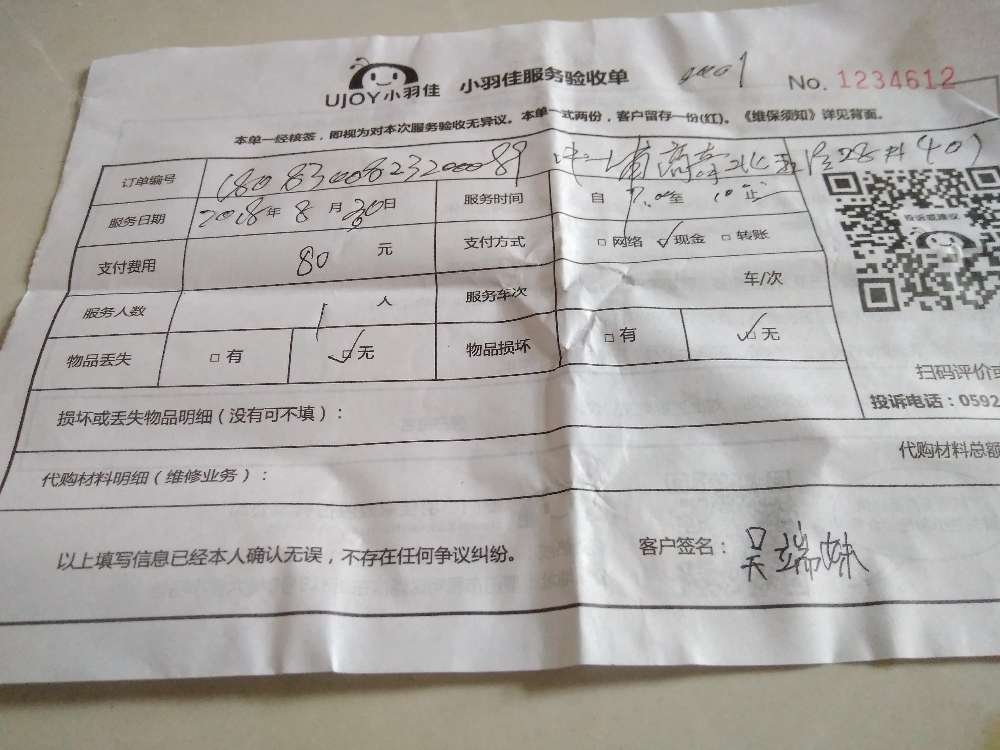 UJOY小羽佳 小羽佳服务验收单 No. 1234612
本单一经核签，即视为对本次服务验收无异议。本单一式两份，客户留存一份(红)。《维保须知》详见背面。
订单编号 180830082320089
服务日期 2018年8月30日 服务时间 自 至 止
支付费用 80 元 支付方式 □网络 ☑现金 □转账
投诉或建议
服务人数 1 人 服务车次 车/次
物品丢失 □有 ☑无 物品损坏 □有 ☑无
扫码评价或
投诉电话：0592
损坏或丢失物品明细（没有可不填）：
代购材料明细（维修业务）： 代购材料总额
以上填写信息已经本人确认无误，不存在任何争议纠纷。 客户签名：吴瑞妹